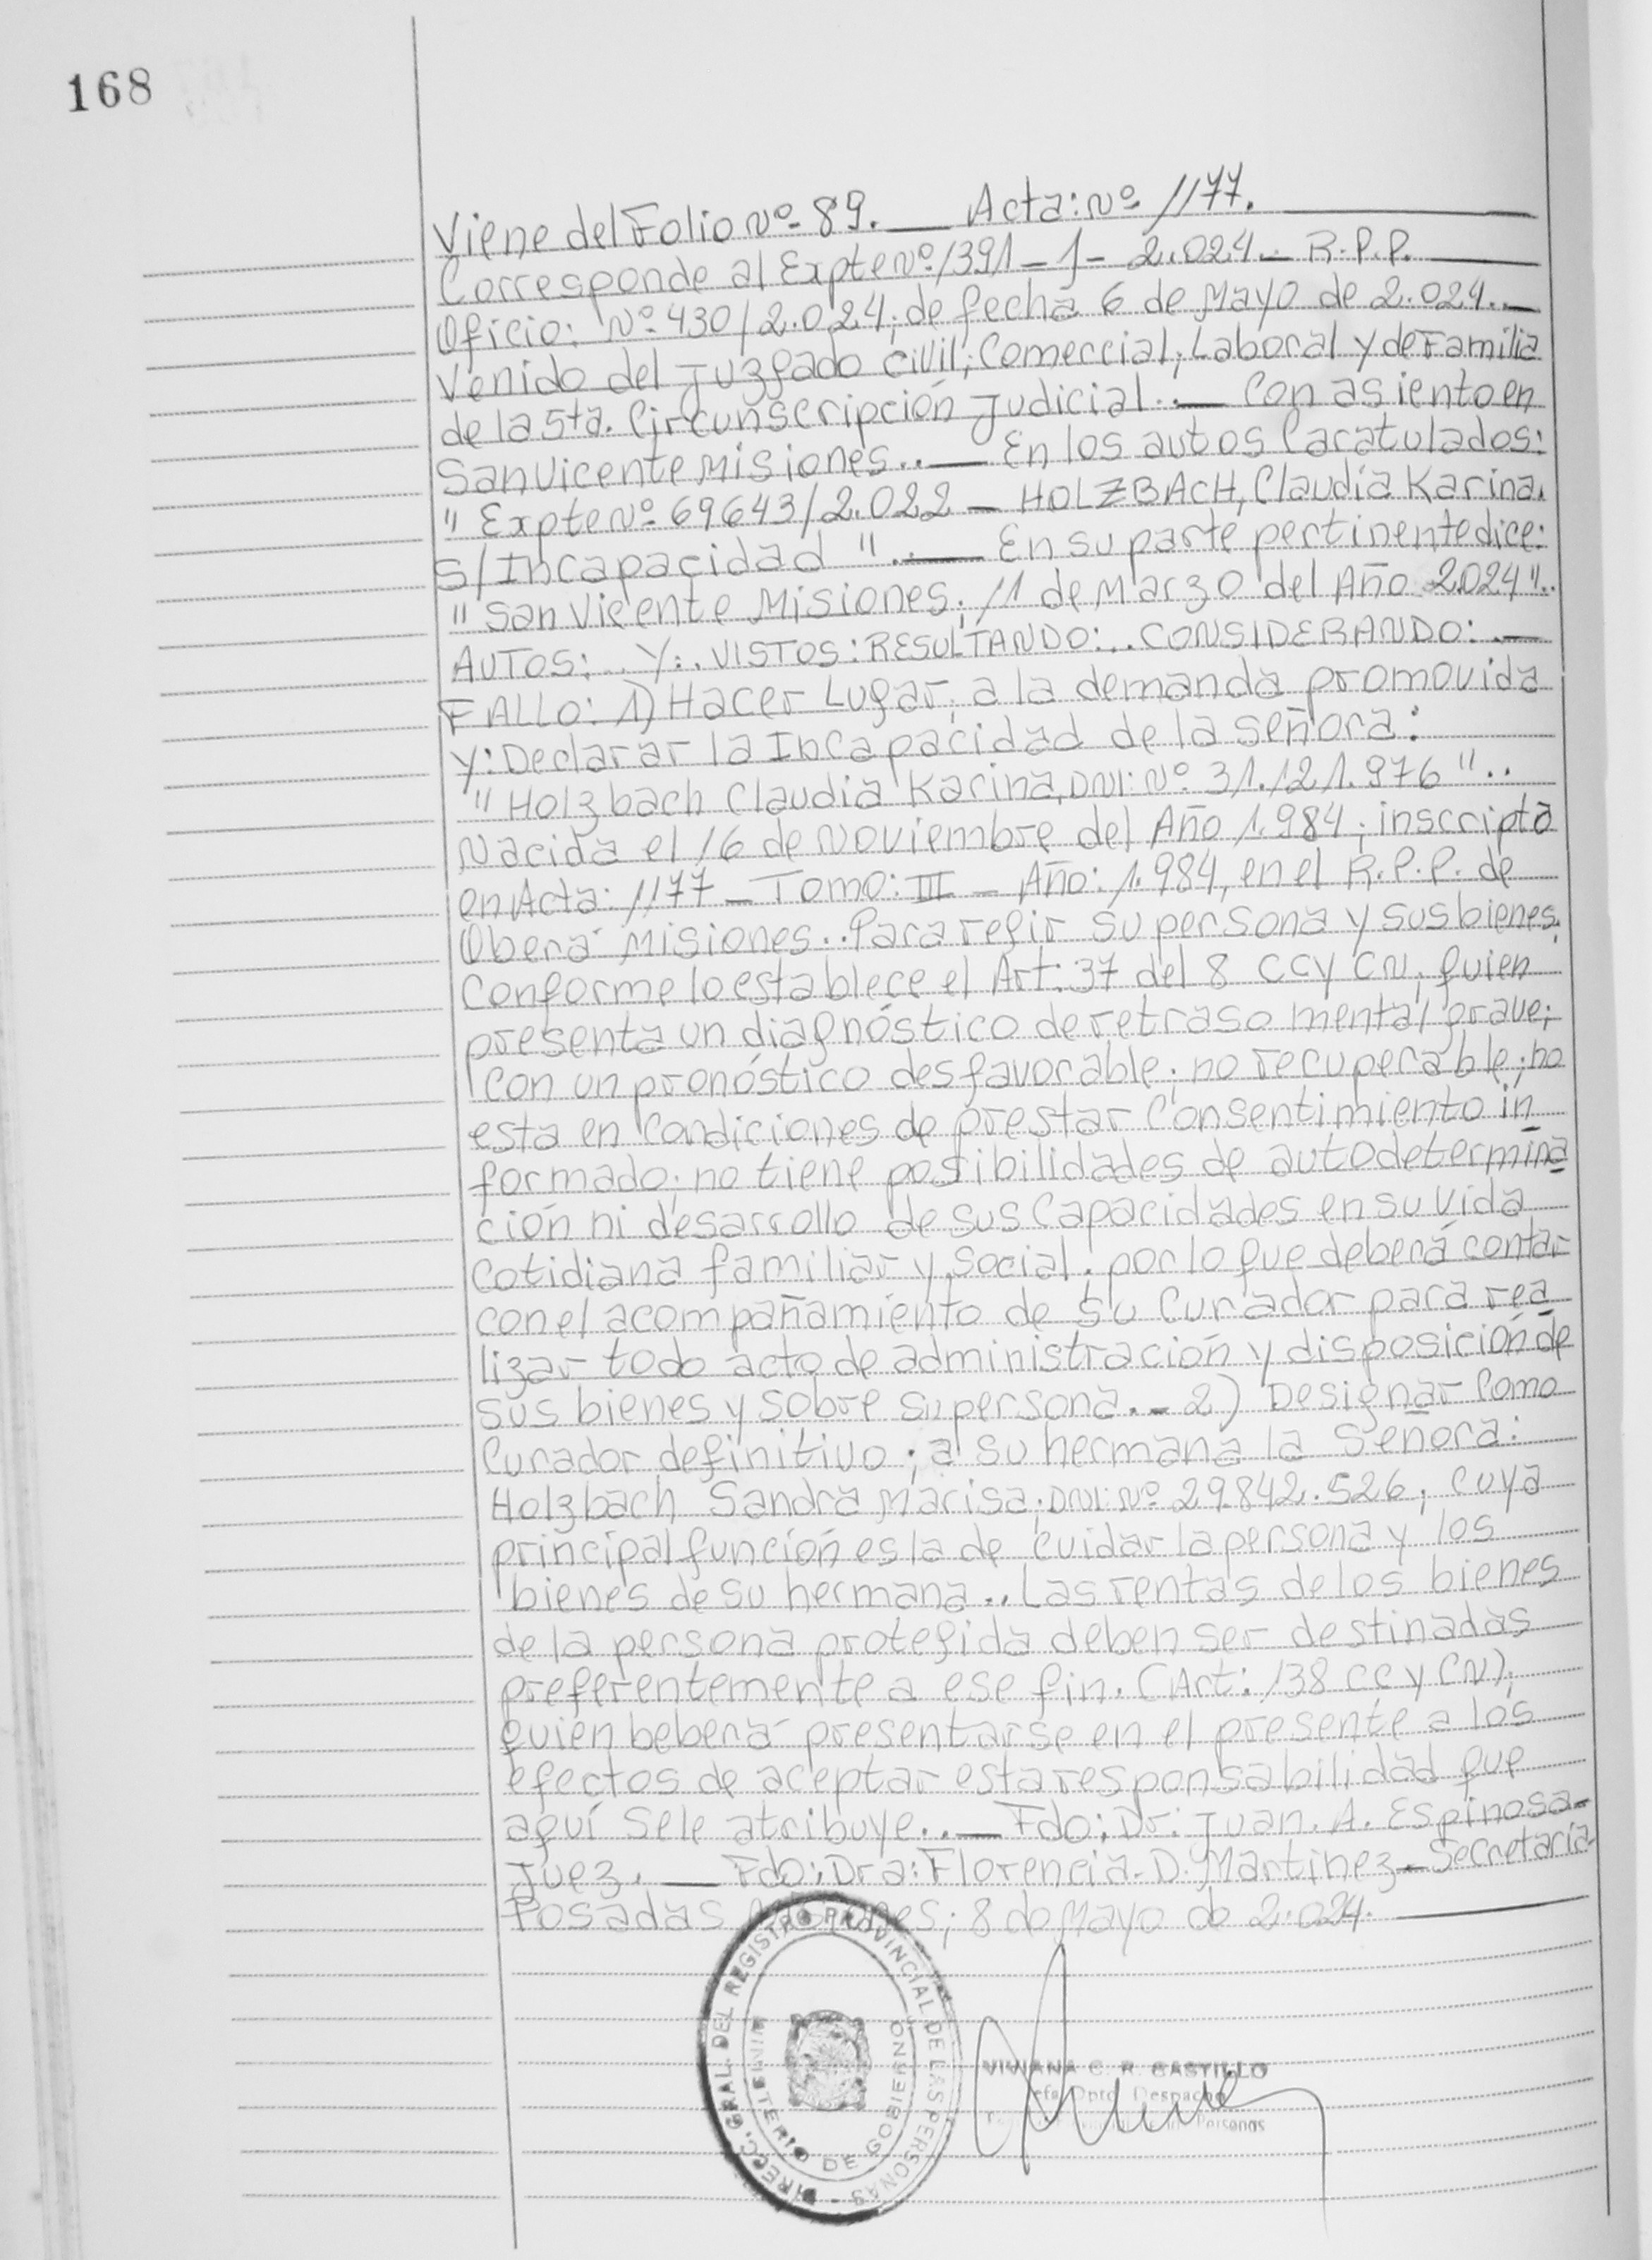 168
Viene del Folio Nº 89. — Acta: Nº 1177.
Corresponde al Expte Nº 1391 - J - 2.024 - R.P.P.
Oficio: Nº 430/2.024; de fecha 6 de Mayo de 2.024..—
Venido del Juzgado Civil; Comercial; Laboral y de Familia
de la 5ta. Circunscripción Judicial..— Con asiento en
San Vicente Misiones..— En los autos Caratulados:
" Expte Nº 69643/2.022 - HOLZBACH, Claudia Karina.
S/Incapacidad "..— En su parte pertinente dice:
" San Vicente Misiones; 11 de Marzo del Año 2.024"..
AUTOS:.. Y:. VISTOS: RESULTANDO:.. CONSIDERANDO:.—
FALLO: 1) Hacer Lugar; a la demanda promovida
Y: Declarar la Incapacidad de la señora:
" Holzbach Claudia Karina, DNI: Nº 31.121.976 "..
Nacida el 16 de Noviembre del Año 1.984; inscripta
en Acta: 1177 - Tomo: III - Año: 1.984, en el R.P.P. de
Oberá Misiones.. Para regir su persona y sus bienes.
Conforme lo establece el Art: 37 del 8 CCY CN; quien
presenta un diagnóstico de retraso mental grave;
con un pronóstico desfavorable; no recuperable; no
esta en Condiciones de prestar Consentimiento in
formado; no tiene posibilidades de autodetermina
ción ni desarrollo de sus Capacidades en su vida
Cotidiana familiar y social. por lo que deberá contar
con el acompañamiento de su Curador para rea
lizar todo acto de administración y disposición de
sus bienes y sobre su persona.- 2) Designar Como
Curador definitivo; a su hermana la Señora:
Holzbach Sandra Marisa; DNI: Nº 29.842.526; cuya
principal función es la de cuidar la persona y los
bienes de su hermana.. Las rentas de los bienes
de la persona protegida deben ser destinadas
preferentemente a ese fin. (Art: 138 CC y CN);
quien beberá presentarse en el presente a los
efectos de aceptar esta responsabilidad que
aquí se le atribuye..— Fdo: Dr: Juan. A. Espinosa-
Juez. — Fdo: Dra: Florencia. D. Martinez - Secretaria-
Posadas Misiones; 8 de Mayo de 2.024.
DIRECC. GRAL. DEL REGISTRO PROVINCIAL DE LAS PERSONAS
MINISTERIO DE GOBIERNO
VIVIANA C. R. CASTILLO
Jefa Dpto. Despacho
Personas